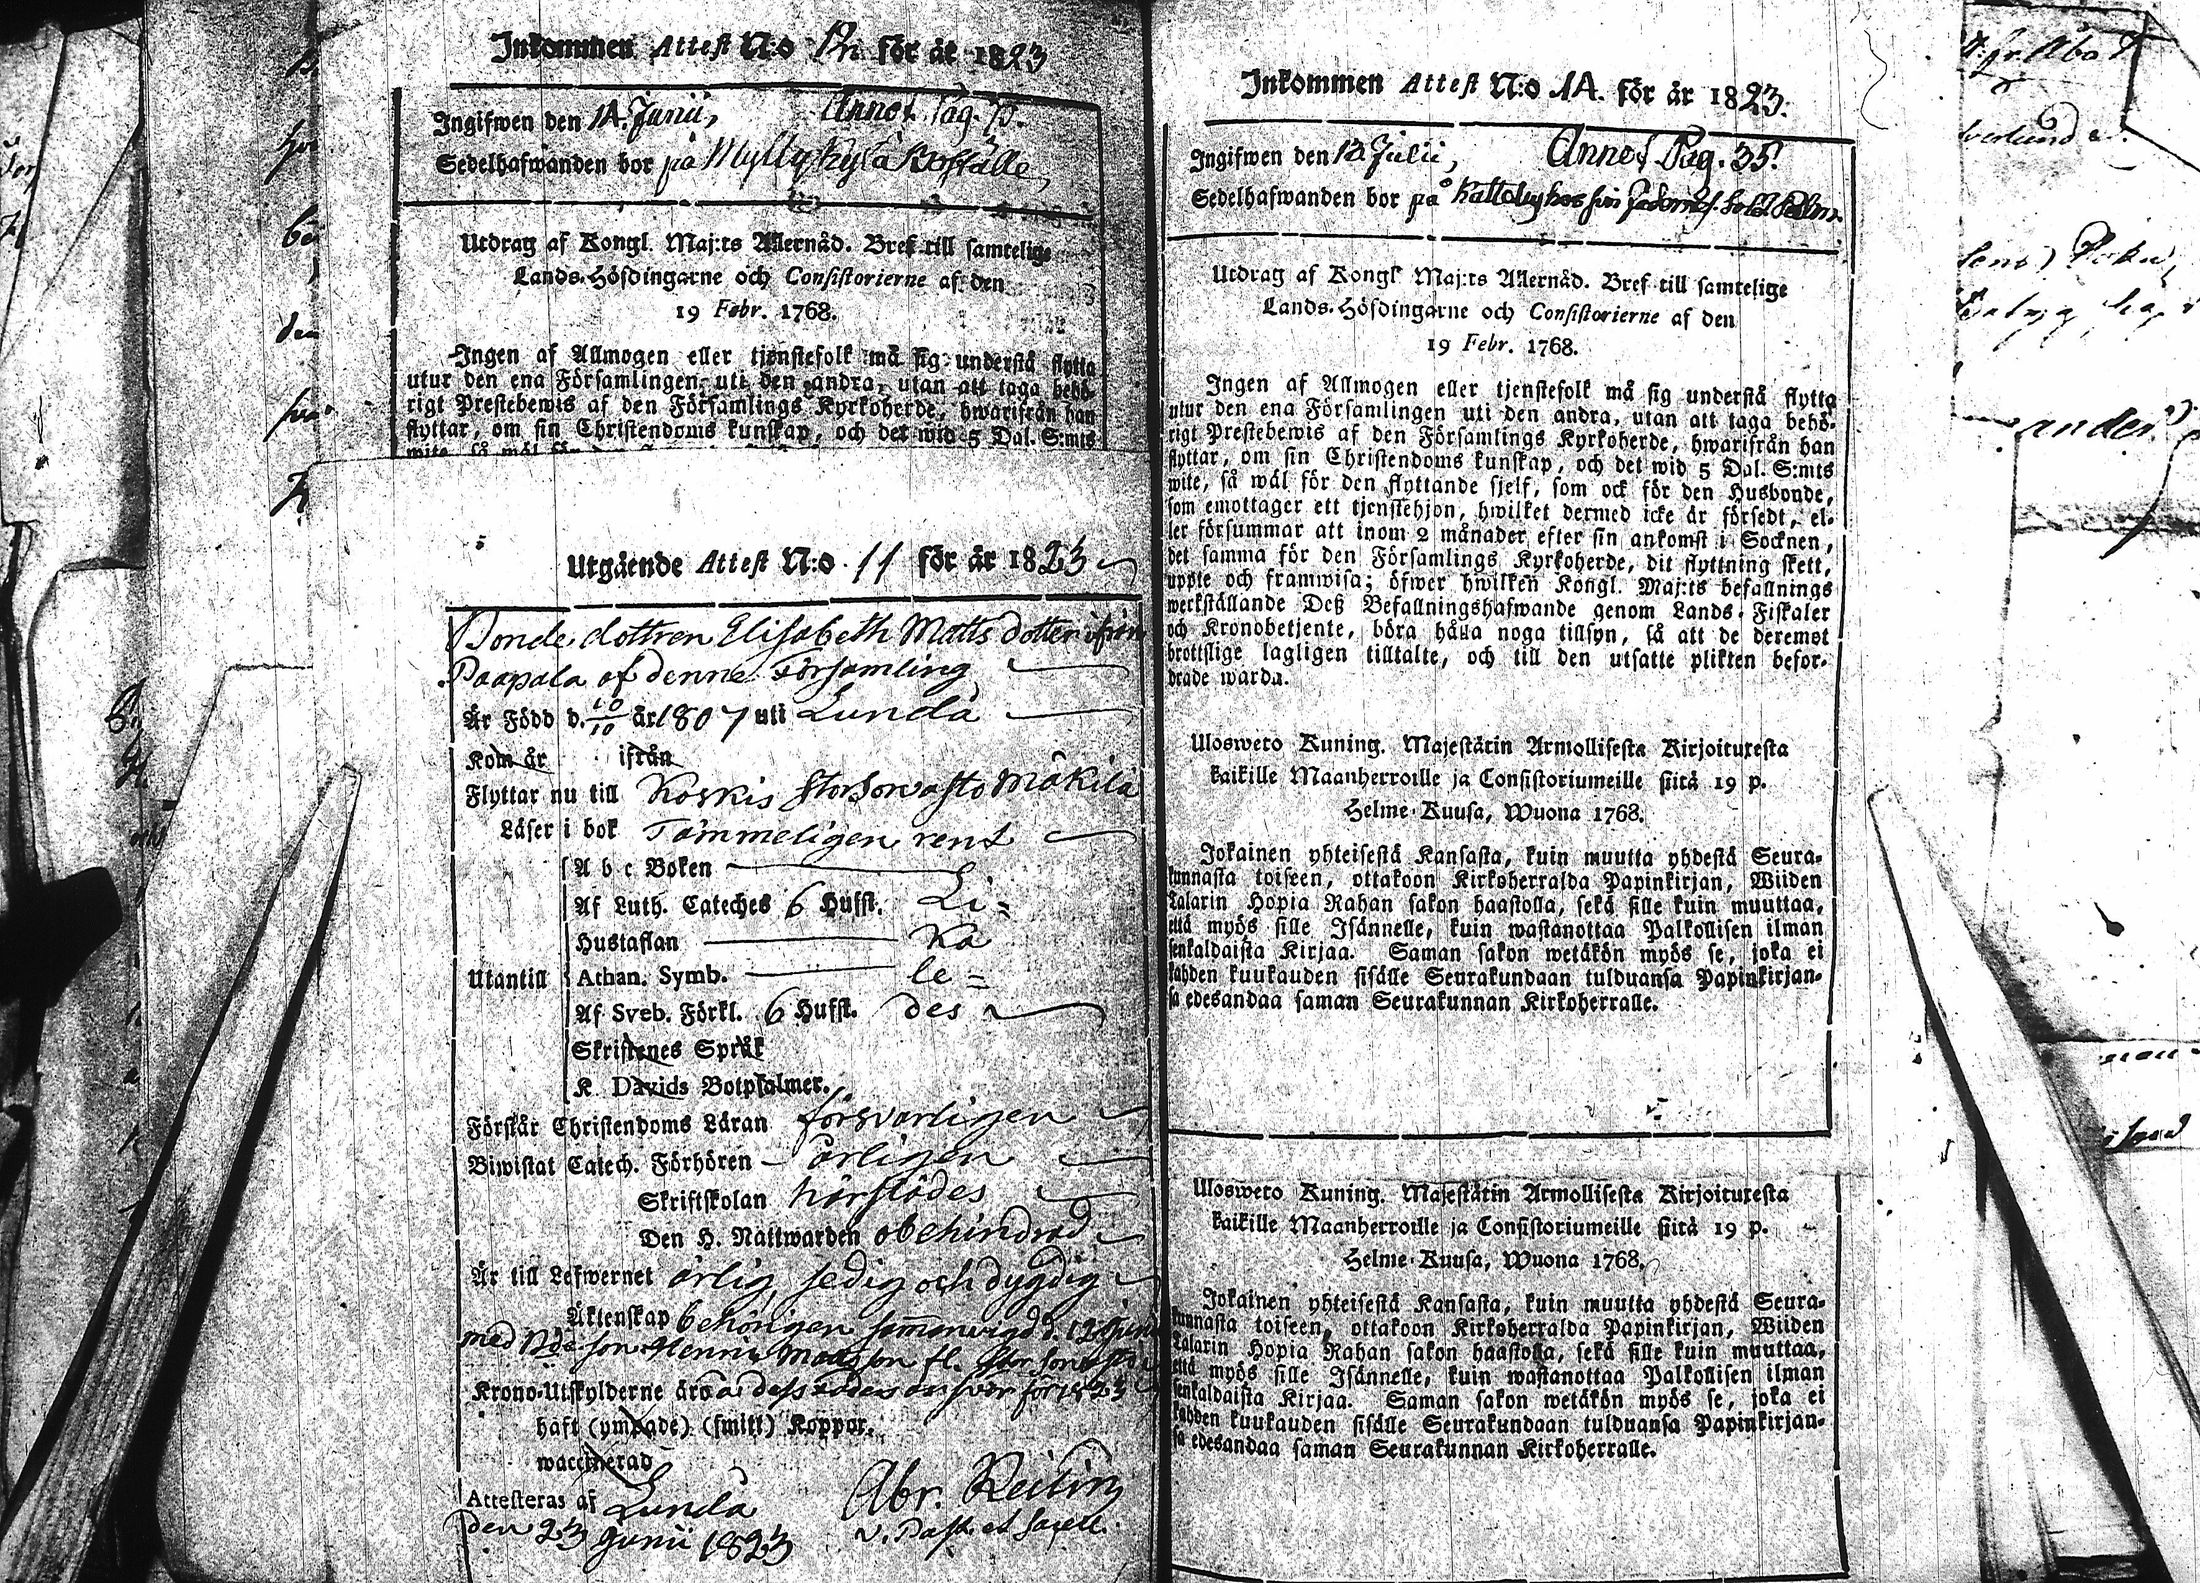 Inkommen Attest N:o för år 1823
Ingifwen den 14. Junii, Annot. Pag. 
Sedelhafwanden bor på Myllykylä Boställe,
Utdrag af Kongl. Maj:ts Allernåd. Bref till samtelige
Lands-Höfdingarne och Consistorierne af den
19 Febr. 1768.
Ingen af Allmogen eller tjenstefolk må sig understå flytta
utur den ena Församlingen uti den andra, utan att taga behö-
rigt Prestebewis af den Församlings Kyrkoherde, hwarifrån han
flyttar, om sin Christendoms kunskap, och det wid 5 Dal. S:mts
Utgående Attest N:o. 11 för år 1823
Bonde dottren Elisabeth Matts dotter ifrån
Paapala af denne Församling
Är Född d. 10/10 år 1807 uti Lundå
Kom år ifrån
Flyttar nu till Koskis Storsorvasto Mäkilä
Läser i bok Tämmeligen rent
A b c Boken
Af Luth. Cateches 6 Hufst. Li=
Hustaflan ka
Utantill Athan. Symb. le=
Af Sveb. Förkl. 6 Hufst. des
Skriftenes Språk
K. Davids Botpsalmer.
Förstår Christendoms Läran försvarligen
Biwistat Catech. Förhören årligen
Skriftskolan härstädes
Den H. Nattwarden obehindrad
Är till Lefwernet ärlig, sedig och dygdig
Äktenskap behörigen sammanvigd d. 12 Junii
med Bde son Henric Mattsson fl. Storsorvasto
Krono-Utskylderne äro å dess faders ansvar för 1823
haft (ympade) (smitt) Koppor.
waccinerad
Attesteras af Lundå Abr. Reilin
den 23 Junii 1823 v. Past. et Sacell.
Inkommen Attest N:o 14. för år 1823.
Ingifwen den 13 Julii, Annot. Pag. 35.
Sedelhafwanden bor på Kattelby hos sin
Utdrag af Kongl. Maj:ts Allernåd. Bref till samtelige
Lands-Höfdingarne och Consistorierne af den
19 Febr. 1768.
Ingen af Allmogen eller tjenstefolk må sig understå flytta
utur den ena Församlingen uti den andra, utan att taga behö-
rigt Prestebewis af den Församlings Kyrkoherde, hwarifrån han
flyttar, om sin Christendoms kunskap, och det wid 5 Dal. S:mts
wite, så wäl för den flyttande sjelf, som ock för den Husbonde,
som emottager ett tjenstehjon, hwilket dermed icke är försedt, el-
ler försummar att inom 2 månader efter sin ankomst i Socknen,
det samma för den Församlings Kyrkoherde, dit flyttning skett,
uppte och framwisa; öfwer hwilken Kongl. Maj:ts befallnings
werkställande Deß Befallningshafwande genom Lands-Fiskaler
och Kronobetjente, böra hålla noga tillsyn, så att de deremot
brottslige lagligen tilltalte, och till den utsatte plikten befor-
drade warda.
Uloswero Kuning. Majestätin Armollisesta Kirjoituxesta
kaikille Maanherroille ja Consistoriumeille siitä 19 p.
Helme-Kuusa, Wuona 1768.
Jokainen yhteisestä Kansasta, kuin muutta yhdestä Seura-
kunnasta toiseen, ottakoon Kirkoherralda Papinkirjan, Wiiden
Talarin Hopia Rahan sakon haastolla, sekä sille kuin muuttaa,
että myös sille Isännelle, kuin wastanottaa Palkollisen ilman
senkaldaista Kirjaa. Saman sakon wetäkön myös se, joka ei
kahden kuukauden sisälle Seurakundaan tulduansa Papinkirjan-
sa edesandaa saman Seurakunnan Kirkoherralle.
Uloswero Kuning. Majestätin Armollisesta Kirjoituxesta
kaikille Maanherroille ja Consistoriumeille siitä 19 p.
Helme-Kuusa, Wuona 1768.
Jokainen yhteisestä Kansasta, kuin muutta yhdestä Seura-
kunnasta toiseen, ottakoon Kirkoherralda Papinkirjan, Wiiden
Talarin Hopia Rahan sakon haastolla, sekä sille kuin muuttaa,
että myös sille Isännelle, kuin wastanottaa Palkollisen ilman
senkaldaista Kirjaa. Saman sakon wetäkön myös se, joka ei
kahden kuukauden sisälle Seurakundaan tulduansa Papinkirjan-
sa edesandaa saman Seurakunnan Kirkoherralle.